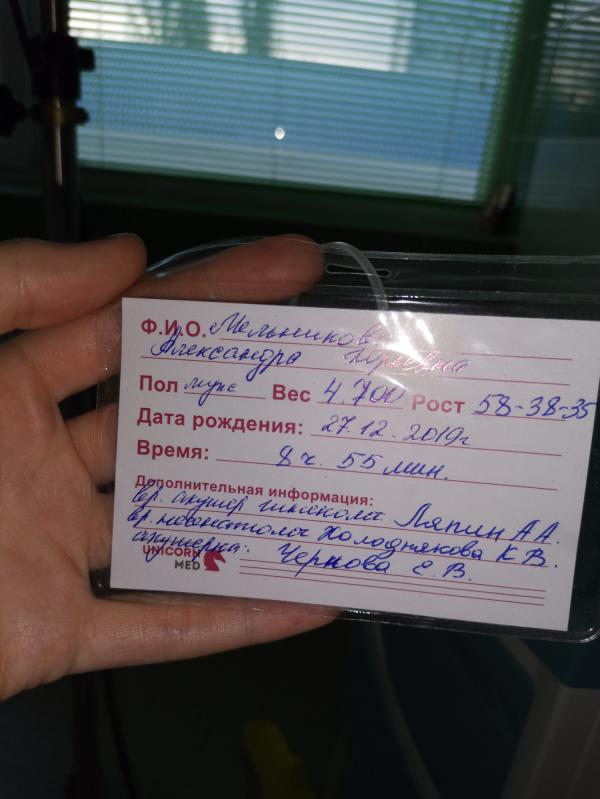 Ф.И.О. Мельникова
Александра Юрьевна
Пол муж Вес 4.700 Рост 58-38-35
Дата рождения: 27.12.2019г
Время: 8 ч. 55 мин.
Дополнительная информация:
вр. акушер гинеколог Ляпин А А.
вр. неонатолог Холоднякова К В.
акушерка: Чернова Е. В.
UNICORN
MED